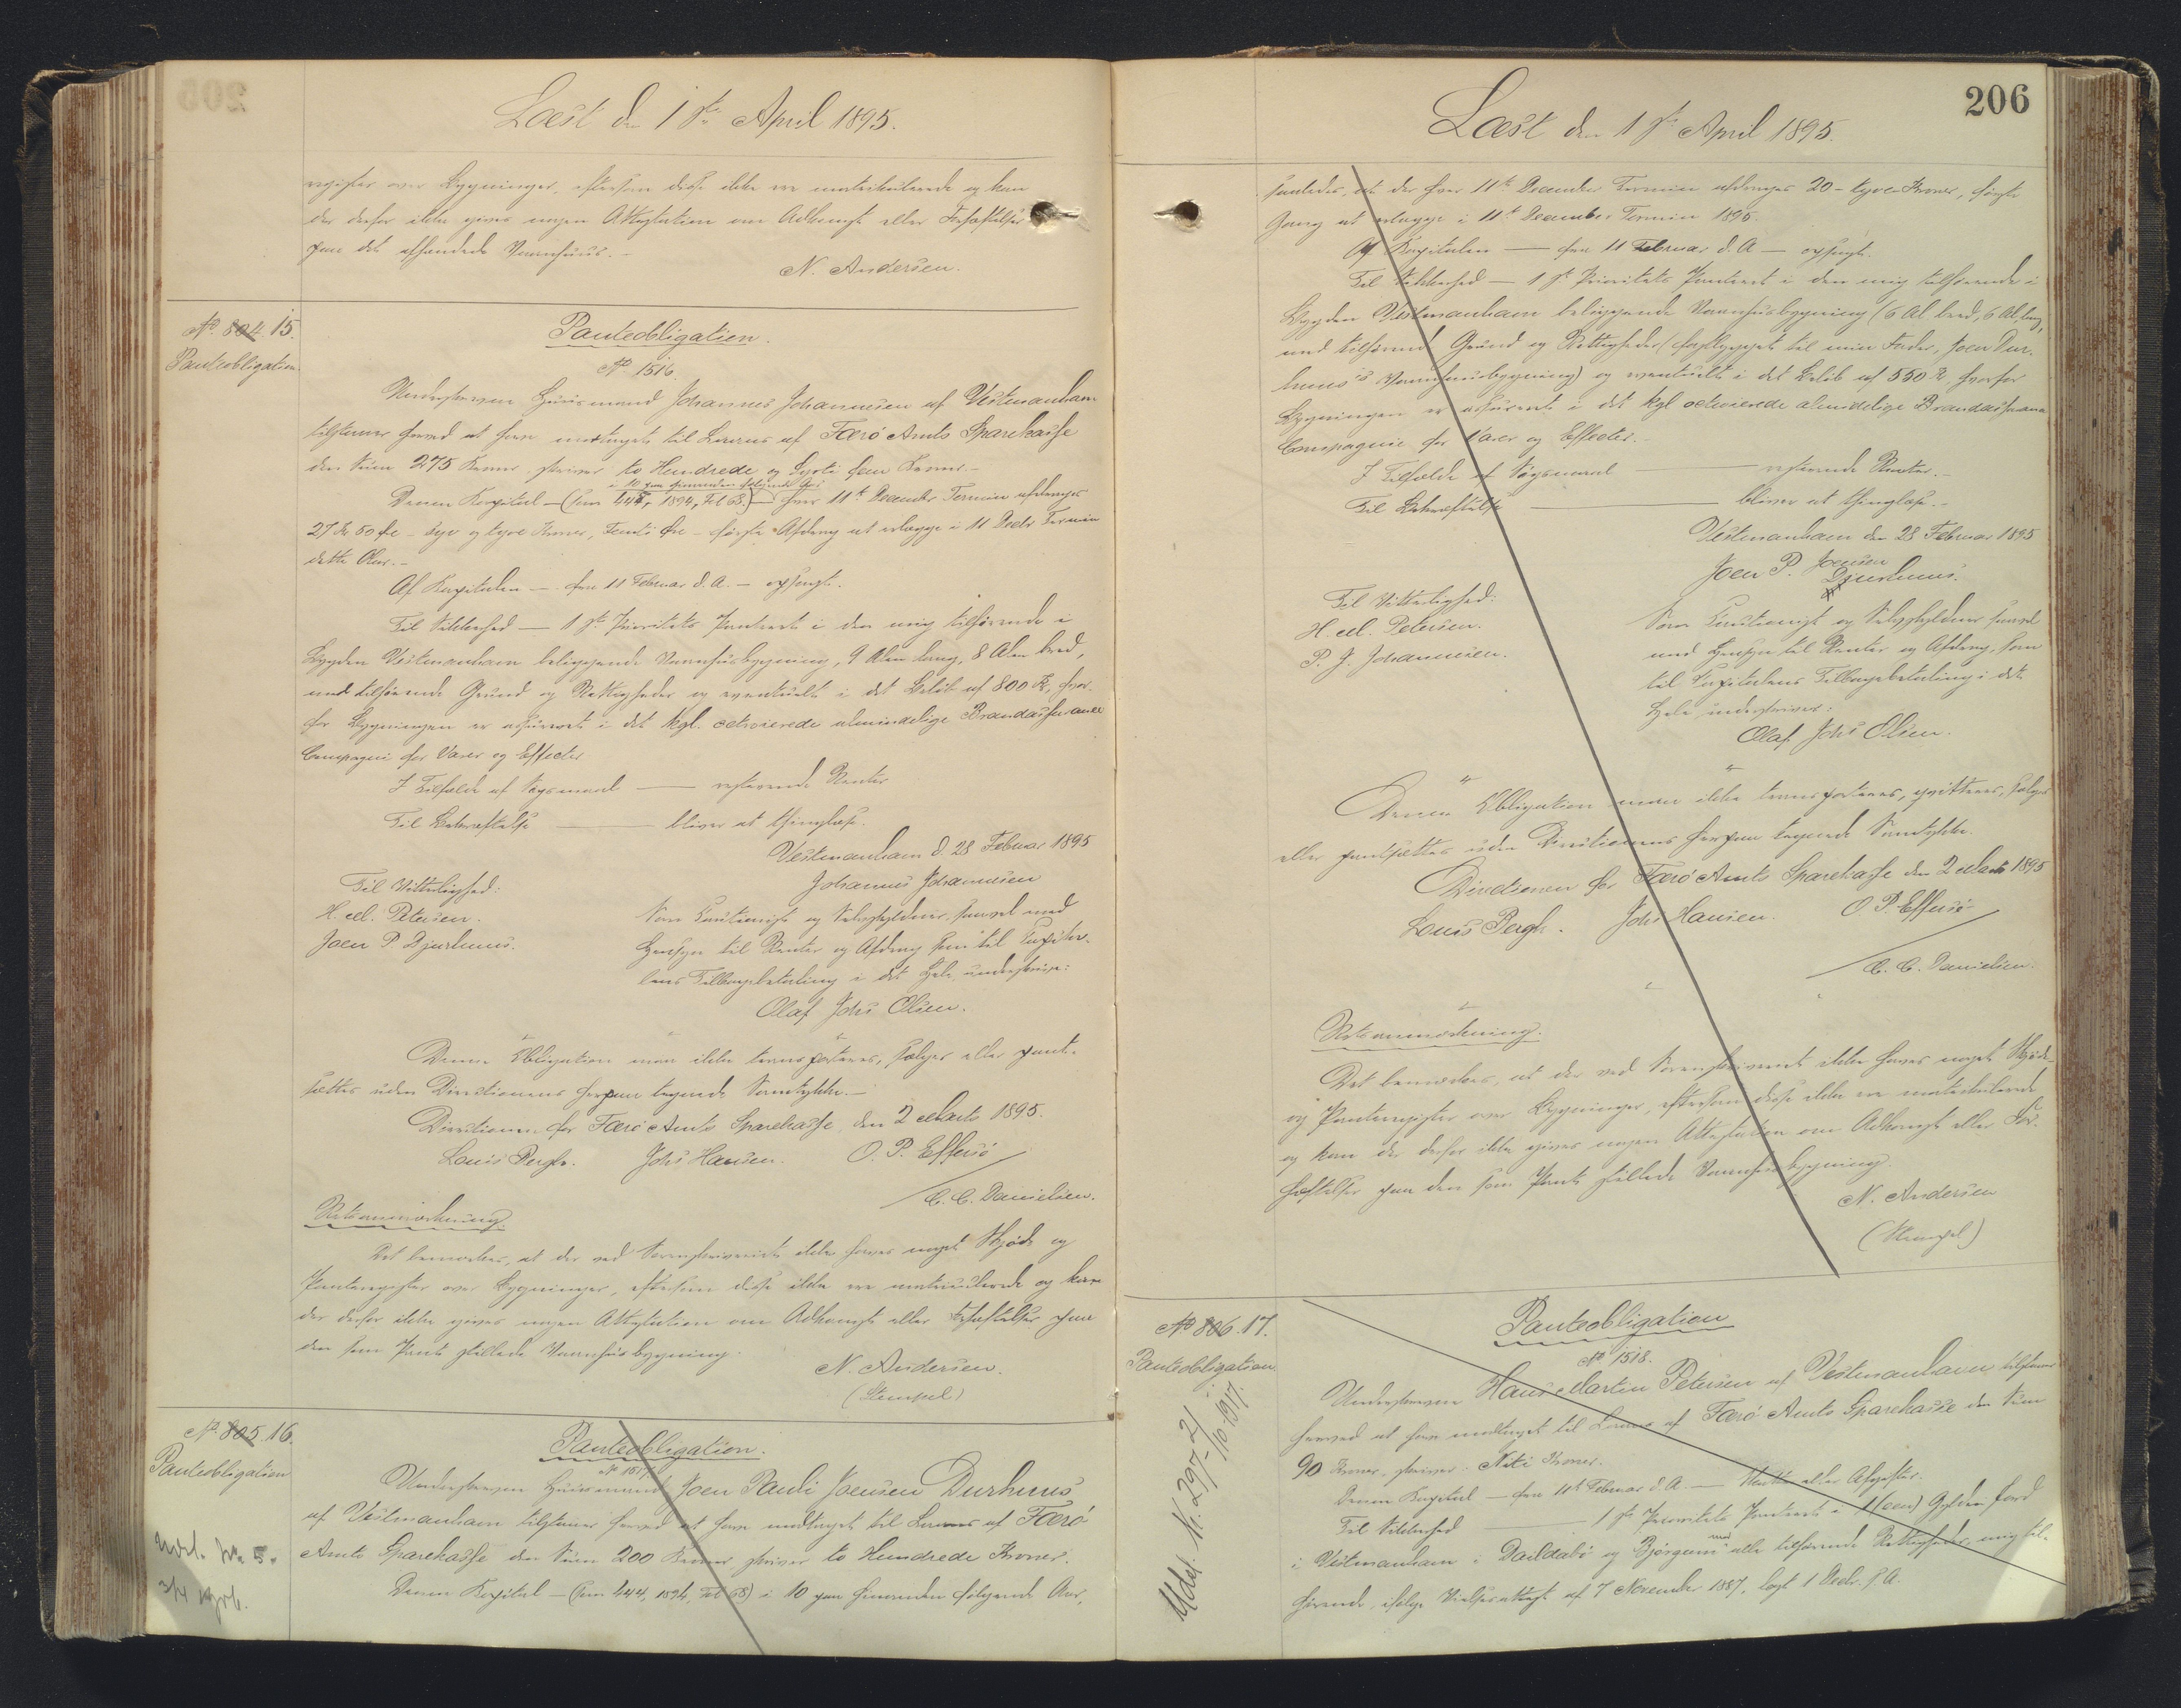 Læst d. 1ste April 1895.
register over Bygninger, eftersom disse ikke ere matrikulerede og kan
der derfor ikke gives nogen Attestation om Adkomst eller Behæftelser
paa det afhændede Vaanhuus.-
N. Andersen.
No. 804. 15.
Panteobligation.
Panteobligation.
No 1516.
Undertegnede Huusmand Johannes Johannesen af Vestmanhavn
tilstaaer herved at have modtaget til Laans af Færø Amts Sparekasse
den Sum 275 Kroner skriver to Hundrede og Systi fem Kroner.-
i 10 paa hinanden følgende Aar
Denne Kapital - (som 444, 1894, Fol 68.) - hver 11te December Termin afdrages
27 Kr 50 Øre - syv og tyve Kroner, Femti Øre - første Afdrag at erlægge i 11 Decbr Termin
dette Aar.-
Af Kapitalen - fra 11 Februar d. A. - opsagt.
Til Sikkerhed - 1ste Prioritets Panteret i den mig tilhørende i
Bygden Vestmanhavn beliggende Vaanhusbygning, 9 Alen lang, 8 Alen bred,
med tilhørende Grund og Rettigheder og eventuelt i det Beløb af 800 Kr, hvor-
for Bygningen er assureret i det kgl. octroierede almindelige Brandassurance
Compagni for Varer og Effecter
I Tilfælde af Søgsmaal - resterende Renter
Til Bekræftelse - bliver at thinglæse.
Vestmanhavn d. 28 Februar 1895
Johannes Johannesen
Til Vitterlighed:
H. M. Petersen.
Joen P. Djurhuus.
Som Cautionist og Selvskyldner saavel med
Hensyn til Renter og Afdrag som til Capita-
lens Tilbagebetaling i det Hele underskriver:
Olaf Johs Olsen.
Denne Obligation maa ikke transporteres, sælges eller pant-
sættes uden Directionens herpaa tegnede Samtykke.-
Directionen for Færø Amts Sparekasse, den 2 Marts 1895.
Louis Bergh. Johs Hansen. O. P. Effersö
/ C. C. Danielsen.
Retsanmærkning.
Det bemærkes, at der ved Sorenskriveriet ikke haves noget Skjøde og
Panteregister over Bygninger, eftersom disse ikke ere matriculerede og kan
der derfor ikke gives nogen Attestation om Adkomst eller Behæftelser paa
den som Pant stillede Vaanhusbygning.
N. Andersen.
(Stempel)
No. 805. 16.
Panteobligation
Panteobligation.
No 1517
Undertegnede Huusmand Joen Pauli Joensen Durhuus
af Vestmanhavn tilstaaer herved at have modtaget til Laans af Færø
Amts Sparekasse den Sum 200 Kroner skriver to Hundrede Kroner.
Denne Kapital - (som 444, 1894, Fol 68) i 10 paa hinanden følgende Aar,
206
Læst den 1ste April 1895.
saaledes, at der hver 11te December Termin afdrages 20 - tyve - Kroner, første
Gang at erlægge i 11te December Termin 1895.
Af Kapitalen - fra 11 Februar d. A - opsagt.
Til Sikkerhed - 1ste Prioritets Panteret i den mig tilhørende i
Bygden Vestmanhavn beliggende Vaanhusbygning (6 Al. bred, 6 Al. lang,
med tilhørende Grund og Rettigheder (fastbygget til min Fader, Joen Dur-
huus's Vaanhusbygning) og eventuelt i det Beløb af 550 Kr, hvorfor
Bygningen er assureret i det kgl octroierede almindelige Brandassurance
Compagnie for Varer og Effecter.
I Tilfælde af Søgsmaal - resterende Renter.-
Til Bekræftelse - bliver at thinglæse.-
Vestmanhavn den 28 Februar 1895
Joen P. Joensen
Djurhuus.
Til Vitterlighed:
H. M. Petersen.
P. J. Johannesen.
Som Cautionist og Selvskyldner saavel
med Hensyn til Renter og Afdrag, som
til Capitalens Tilbagebetaling i det
Hele underskriver:
Olaf Johs Olsen.
Denne Obligation maa ikke transporteres, qvitteres, sælges
eller pantsættes uden Directionens herpaa tegnede Samtykke.
Directionen for Færø Amts Sparekasse den 2 Marts 1895
Louis Bergh. Johs Hansen. O. P. Effersö
/ C. C. Danielsen.
Retsanmærkning.
Det bemærkes, at der ved Sorenskriveriet ikke haves noget Skjøde-
og Panteregister over Bygninger, eftersom disse ikke ere matrikulerede
og kan der derfor ikke gives nogen Attestation om Adkomst eller Be-
hæftelser paa den som Pant stillede Vaanhusbygning.
N. Andersen
(Stempel)
No 806. 17.
Panteobligation.
Udsl. N. 297 - 21/10 1917.
Panteobligation
No 1518.
Undertegnede Hans Martin Petersen af Vestmanhavn tilstaaer
herved at have modtaget til Laans af Færø Amts Sparekasse den Sum
90 Kroner, skriver Niti Kroner.
Denne Kapital - fra 11te Februar d. A. - Skatter eller Afgifter.
Til Sikkerhed - 1ste Prioritets Panteret i 1 (een) Gylden Jord
i Vestmanhavn i Daildabø og Bjørgum med alle tilhørende Rettigheder, mig til-
hørende, ifølge af 7 November 1887, læst 1 Decbr. s. A.